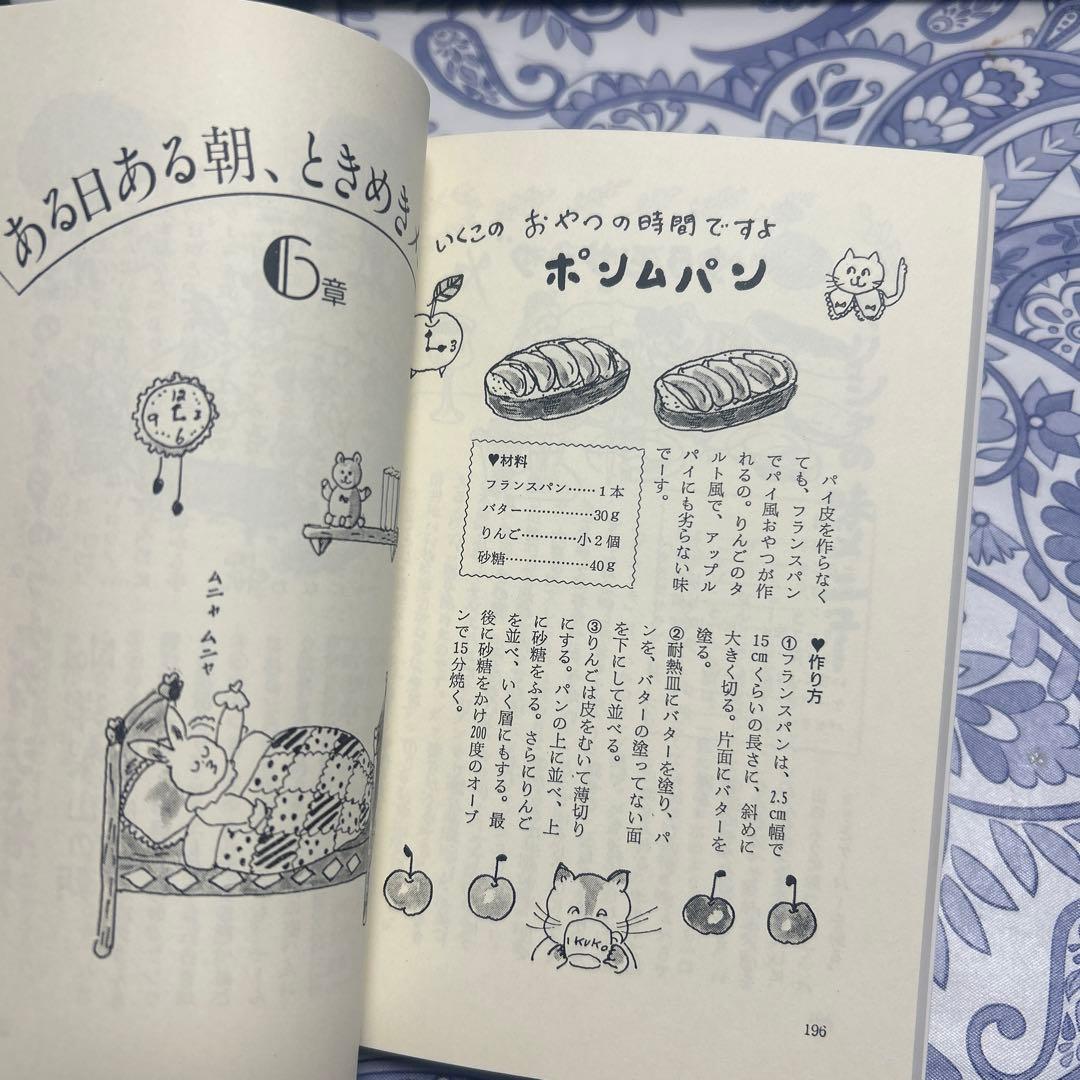 ある日ある朝、ときめき
6章
12
9
3
6
ムニャムニャ
いくこの おやつの時間ですよ
ポンムパン
3
パイ皮を作らなく
ても、フランスパン
でパイ風おやつが作
れるの。りんごのタ
ルト風で、アップル
パイにも劣らない味
でーす。
♥材料
フランスパン……1本
バター……………30g
りんご…………小2個
砂糖………………40g
♥作り方
①フランスパンは、2.5cm幅で
15cmくらいの長さに、斜めに
大きく切る。片面にバターを
塗る。
②耐熱皿にバターを塗り、パ
ンを、バターの塗ってない面
を下にして並べる。
③りんごは皮をむいて薄切り
にする。パンの上に並べ、上
に砂糖をふる。さらにりんご
を並べ、いく層にもする。最
後に砂糖をかけ200度のオーブ
ンで15分焼く。
IKUKO
196